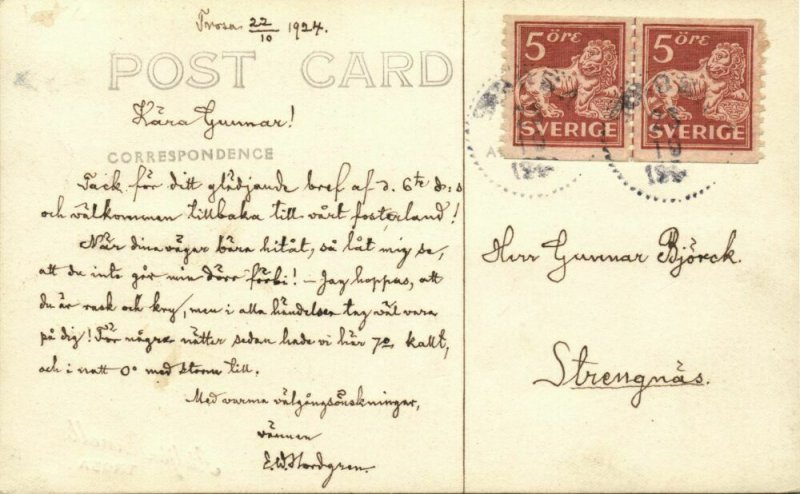 Trosa 22/10 1924.
POST CARD
Kära Gunnar!
CORRESPONDENCE
Tack för ditt glädjande bref af d. 6te d:s
och välkommen tillbaka till vårt fosterland!
När dina vägar bära hitåt, så låt mig se,
att du inte går min dörr förbi! – Jag hoppas, att
du är rask och kry, men i alla händelser tag väl vara
på dig! För några nätter sedan hade vi här 7° kallt,
och i natt 0° med storm till.
Med varma välgångsönskningar,
vännen
E.W. Nordgren.
5 ÖRE
SVERIGE
5 ÖRE
SVERIGE
Herr Gunnar Björck.
Strengnäs.